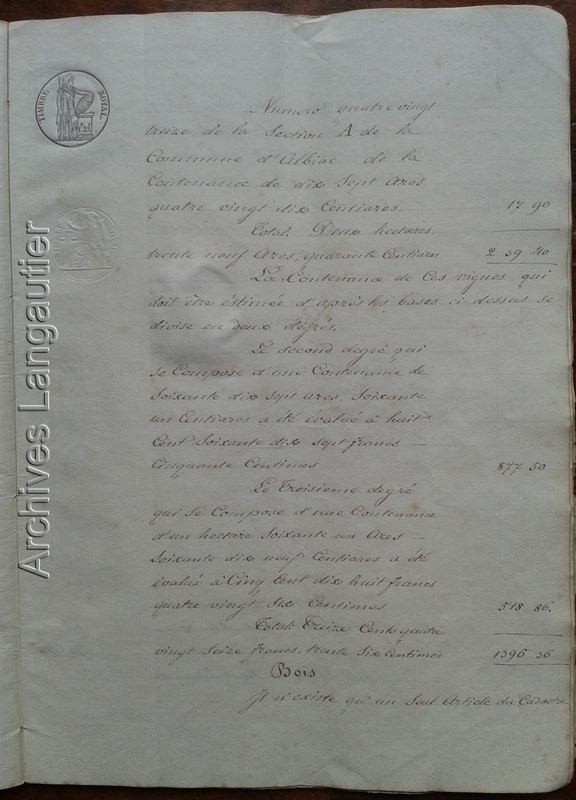 TIMBRE ROYAL
Numéro quatre vingt
treize de la Section A de la
Commune d'Albiac de la
Contenance de dix Sept Ares
quatre vingt dix Centiares. 17 90
Total. Deux hectares
trente neuf Ares, quarante Centiares 2 39 40
La Contenance de Ces vignes qui
doit être estimée d'après les bases ci-dessus se
divise en deux dégrés.
Le Second degré qui
se Compose d'une Contenance de
Soixante dix sept ares, Soixante
un Centiares a été évalué à huit
Cent Soixante dix sept francs —
Cinquante Centimes 877 50
Le Troisieme degré
qui se Compose d'une Contenance
d'un hectare Soixante un Ares —
Soixante dix neuf Centiares a été
évalué à Cinq Cent dix huit francs
quatre vingt Six Centimes 518 86.
Total. Treize Cents quatre
vingt Seize francs, trente Six Centimes 1396 36
Bois
Il n'existe qu'un Seul Article du Cadastre
Archives Langautier